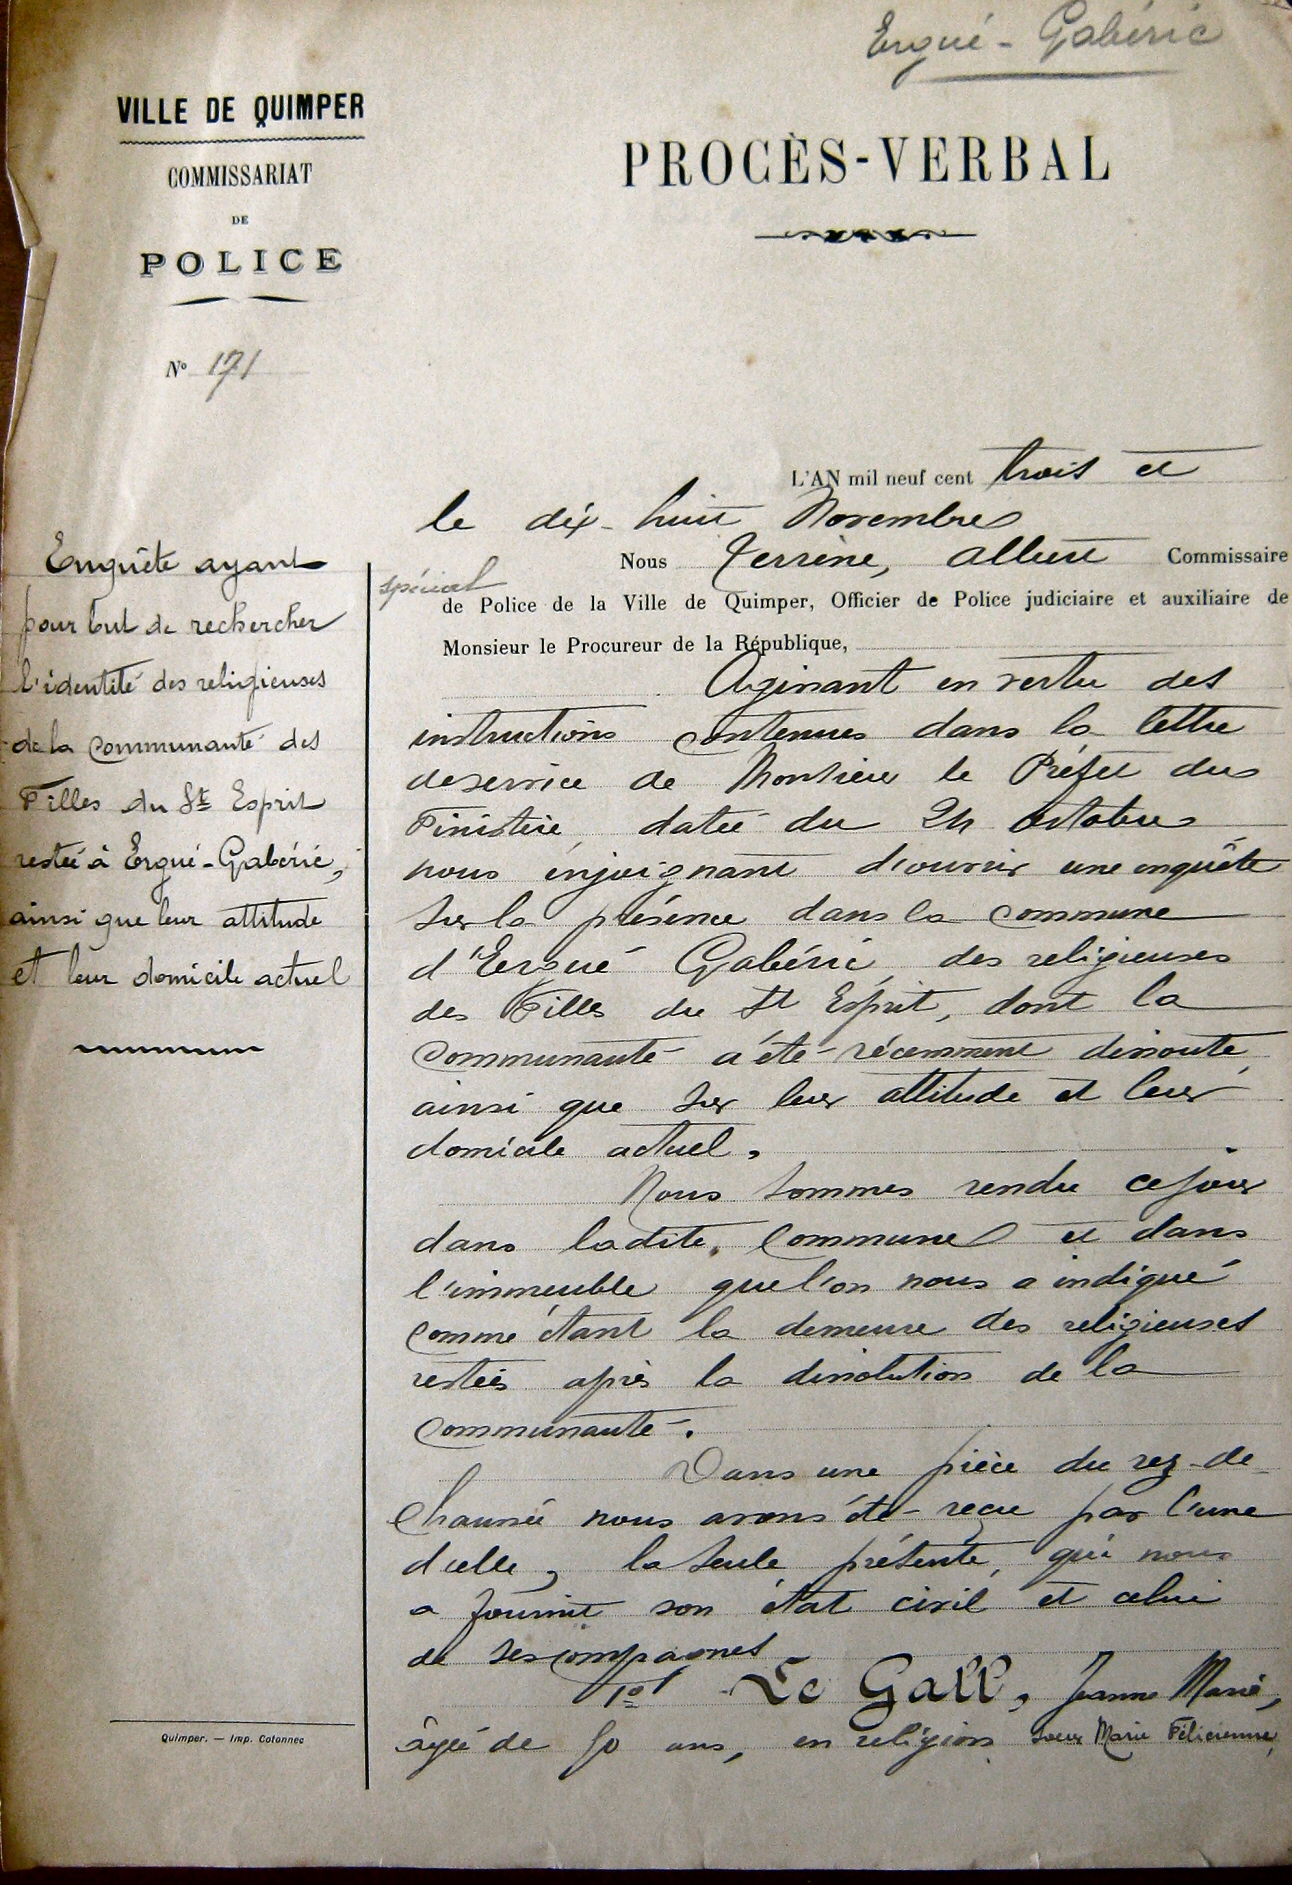 Ergué-Gabéric
VILLE DE QUIMPER
COMMISSARIAT
DE
POLICE
N° 171
PROCÈS-VERBAL
L'AN mil neuf cent trois et
le dix-huit Novembre
Nous Terrène, Albert Commissaire
spécial
de Police de la Ville de Quimper, Officier de Police judiciaire et auxiliaire de
Monsieur le Procureur de la République,
Enquête ayant
pour but de rechercher
l'identité des religieuses
de la communauté des
Filles du St Esprit
restée à Ergué-Gabéric,
ainsi que leur attitude
et leur domicile actuel
Agissant en vertu des
instructions contenues dans la lettre
de service de Monsieur le Préfet du
Finistère, datée du 24 octobre
nous enjoignant d'ouvrir une enquête
sur la présence dans la commune
d'Ergué Gabéric, des religieuses
des Filles du St Esprit, dont la
communauté a été récemment dissoute,
ainsi que sur leur attitude et leur
domicile actuel.
Nous sommes rendu ce jour
dans ladite commune et dans
l'immeuble que l'on nous a indiqué
comme étant la demeure des religieuses
restées après la dissolution de la
communauté.
Dans une pièce du rez-de-
chaussée nous avons été reçu par l'une
d'elle, la seule présente, qui nous
a fournit son état civil et celui
de ses compagnes
1° Le Gall, Jeanne Marie,
âgée de 50 ans, en religion soeur Marie Félicienne,
Quimper. — Imp. Cotonnec